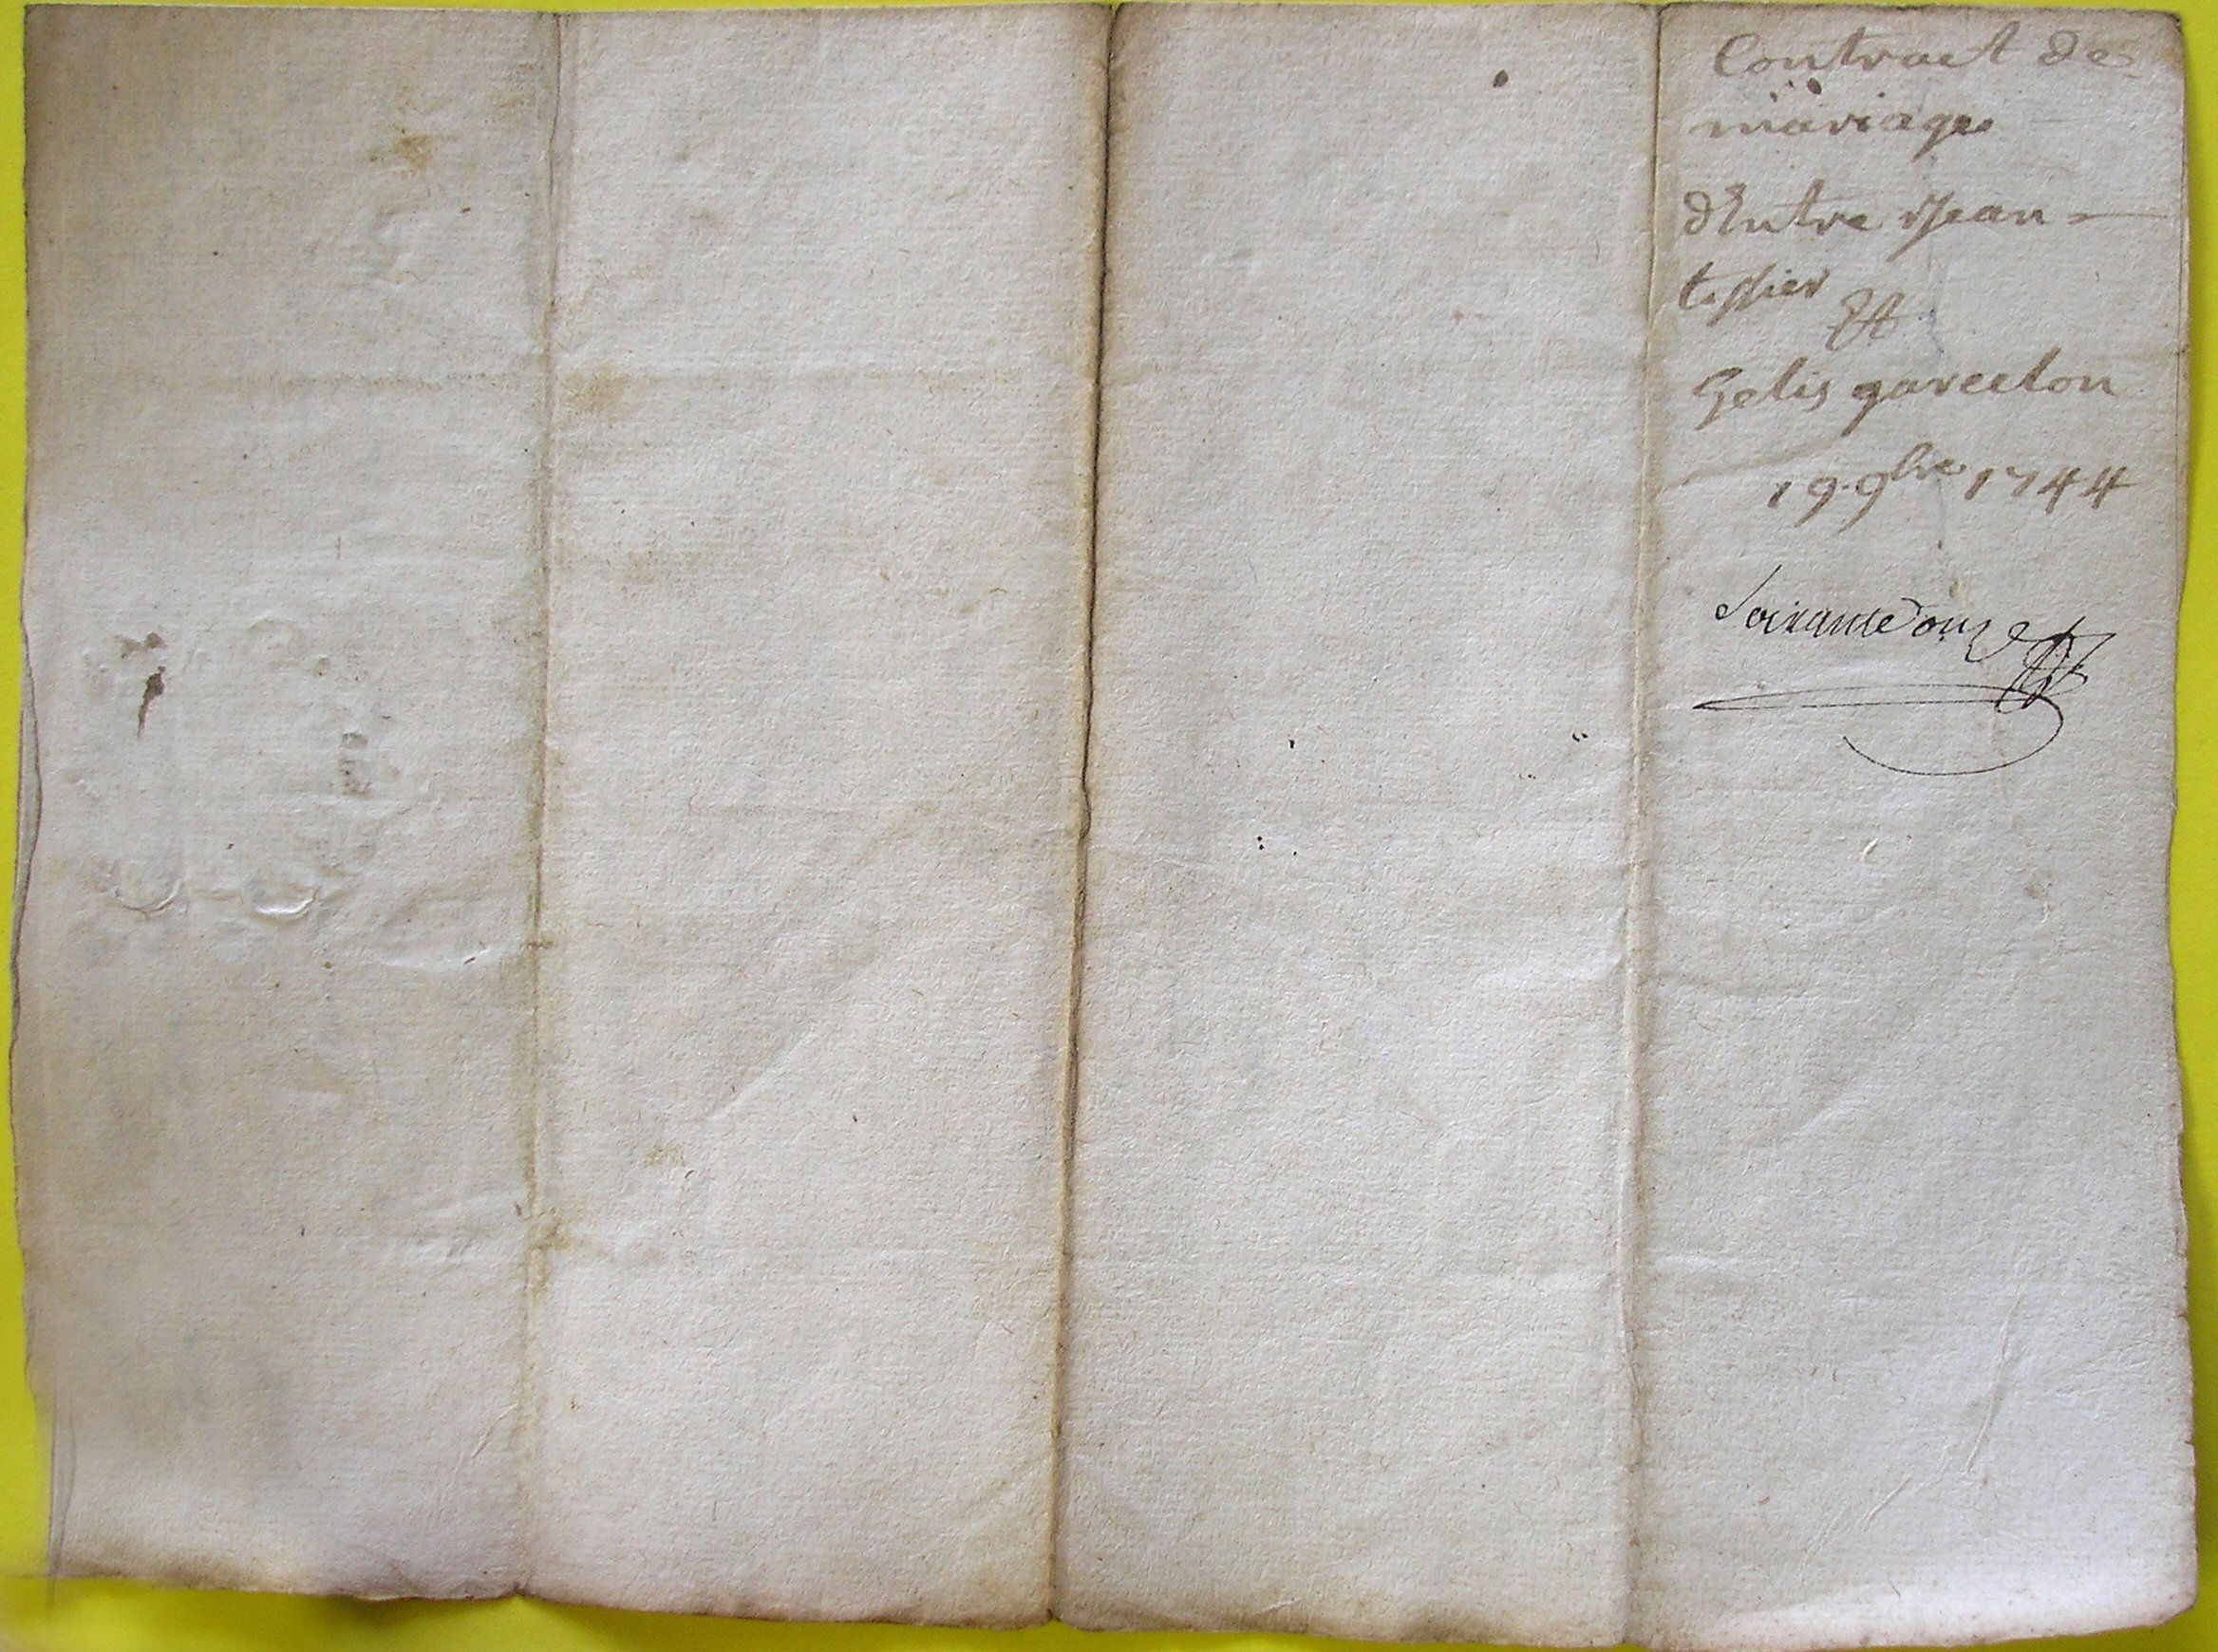 Contract de
mariage
d'Entre Jean
tessier
Et
Gelis garcelon
19 9bre 1744
Soixante onze